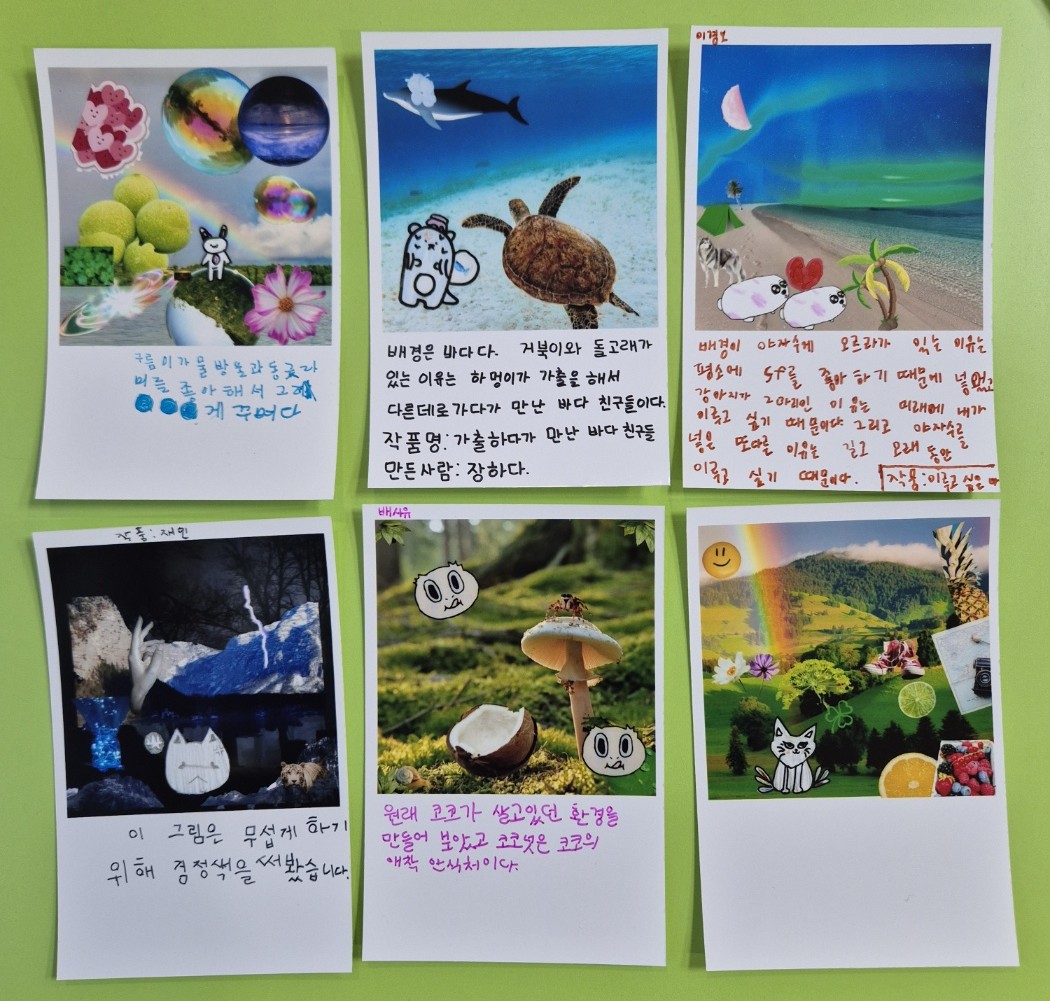 구름이가 물방울과 동글라
미를 좋아해서 그
게 꾸며다
배경은 바다다. 거북이와 돌고래가
있는 이유는 하멍이가 가출을 해서
다른데로가다가 만난 바다 친구들이다.
작품명: 가출하다가 만난 바다 친구들
만든사람: 장하다.
배경이 야자수게 오르라가 있는 이유는
평소에 를 좋아하기 때문에 넣었고
강아지가 2마리인 이유는 미래에 내가
이루고 싶기 때문이다 그리고 야자수를
넣은 또다를 이유는 길고 오래 동안
이루고 싶기 때문이다.
작품: 이루고 싶은
작품: 재민
이 그림은 무섭게 하기
위해 검정색을 써봤습니다.
배사유
원래 코코가 살고있던 환경을
만들어 보았고 코코넛은 코코의
애착 안식처이다.